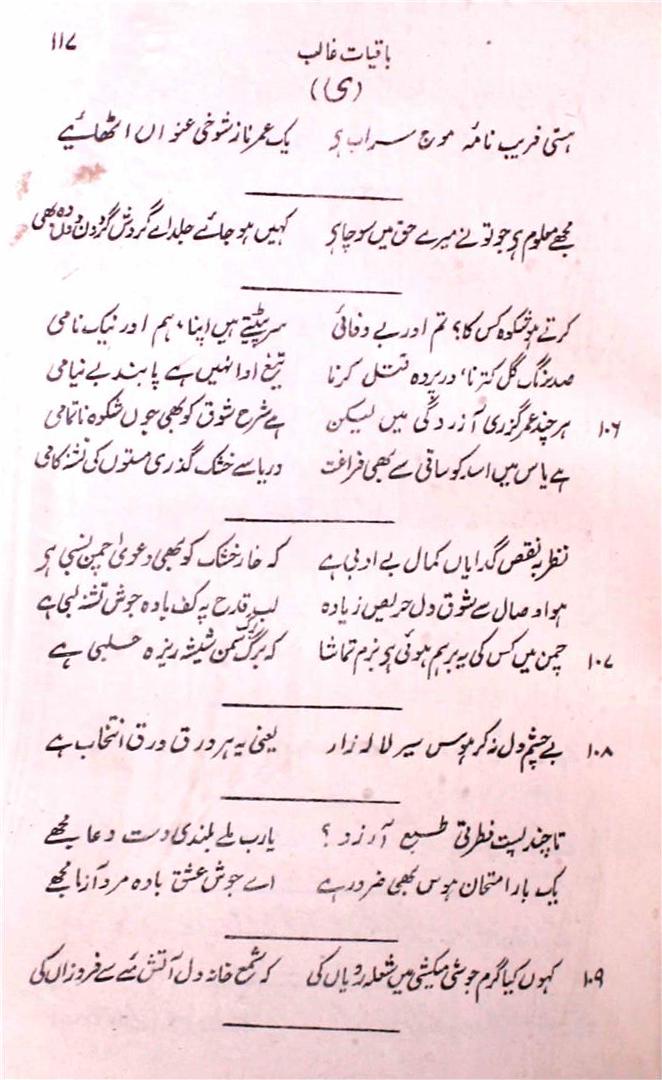 ۱۱۷
باقیات غالب
(ی)
ہستی فریب نامۂ موج سراب ہی یک عمر ناز شوخی عنواں اٹھائیے
مجھے معلوم ہی جو تو نے میرے حق میں سوچا ہی کہیں ہو جائے جلد اے گردش گردون دوں وہ بھی
کرتے ہو شکوہ کس کا؟ تم اور بے وفائی سر پیٹتے ہیں اپنا، ہم اور نیک نامی
صد رنگ گل کترنا، در پردہ قتل کرنا تیغ ادا نہیں ہے پابند بے نیامی
۱۰۶ ہر چند عمر گزری آزردگی میں لیکن ہے شرح شوق کو بھی جوں شکوہ ناتمامی
ہے یاس میں اسد کو ساقی سے بھی فراغت دریا سے خشک گذری مستوں کی تشنہ کامی
نظر بہ نقص گدایاں کمال بے ادبی ہے کہ خار خشک کو بھی دعویٰ چمن نسبی ہی
ہوا وصال سے شوق دل حریص زیادہ لب قدح پہ کف بادہ جوش تشنہ لبی ہے
۱۰۷ چمن میں کس کی یہ برہم ہوئی ہی بزم تماشا کہ برگ برگ سمن شیشہ ریزہ حلبی ہے
۱۰۸ بے چشم دل نہ کر ہوس سیر لالہ زار یعنی یہ ہر ورق ورق انتخاب ہے
تا چند پست فطرتی طبع آرزو؟ یارب ملے بلندی دست دعا مجھے
یک بار امتحان ہوس بھی ضرور ہے اے جوش عشق بادہ مرد آزما مجھے
۱۰۹ کہوں کیا گرم جوشی میکشی میں شعلہ رویاں کی کہ شمع خانہ دل آتش مئے سے فروزاں کی